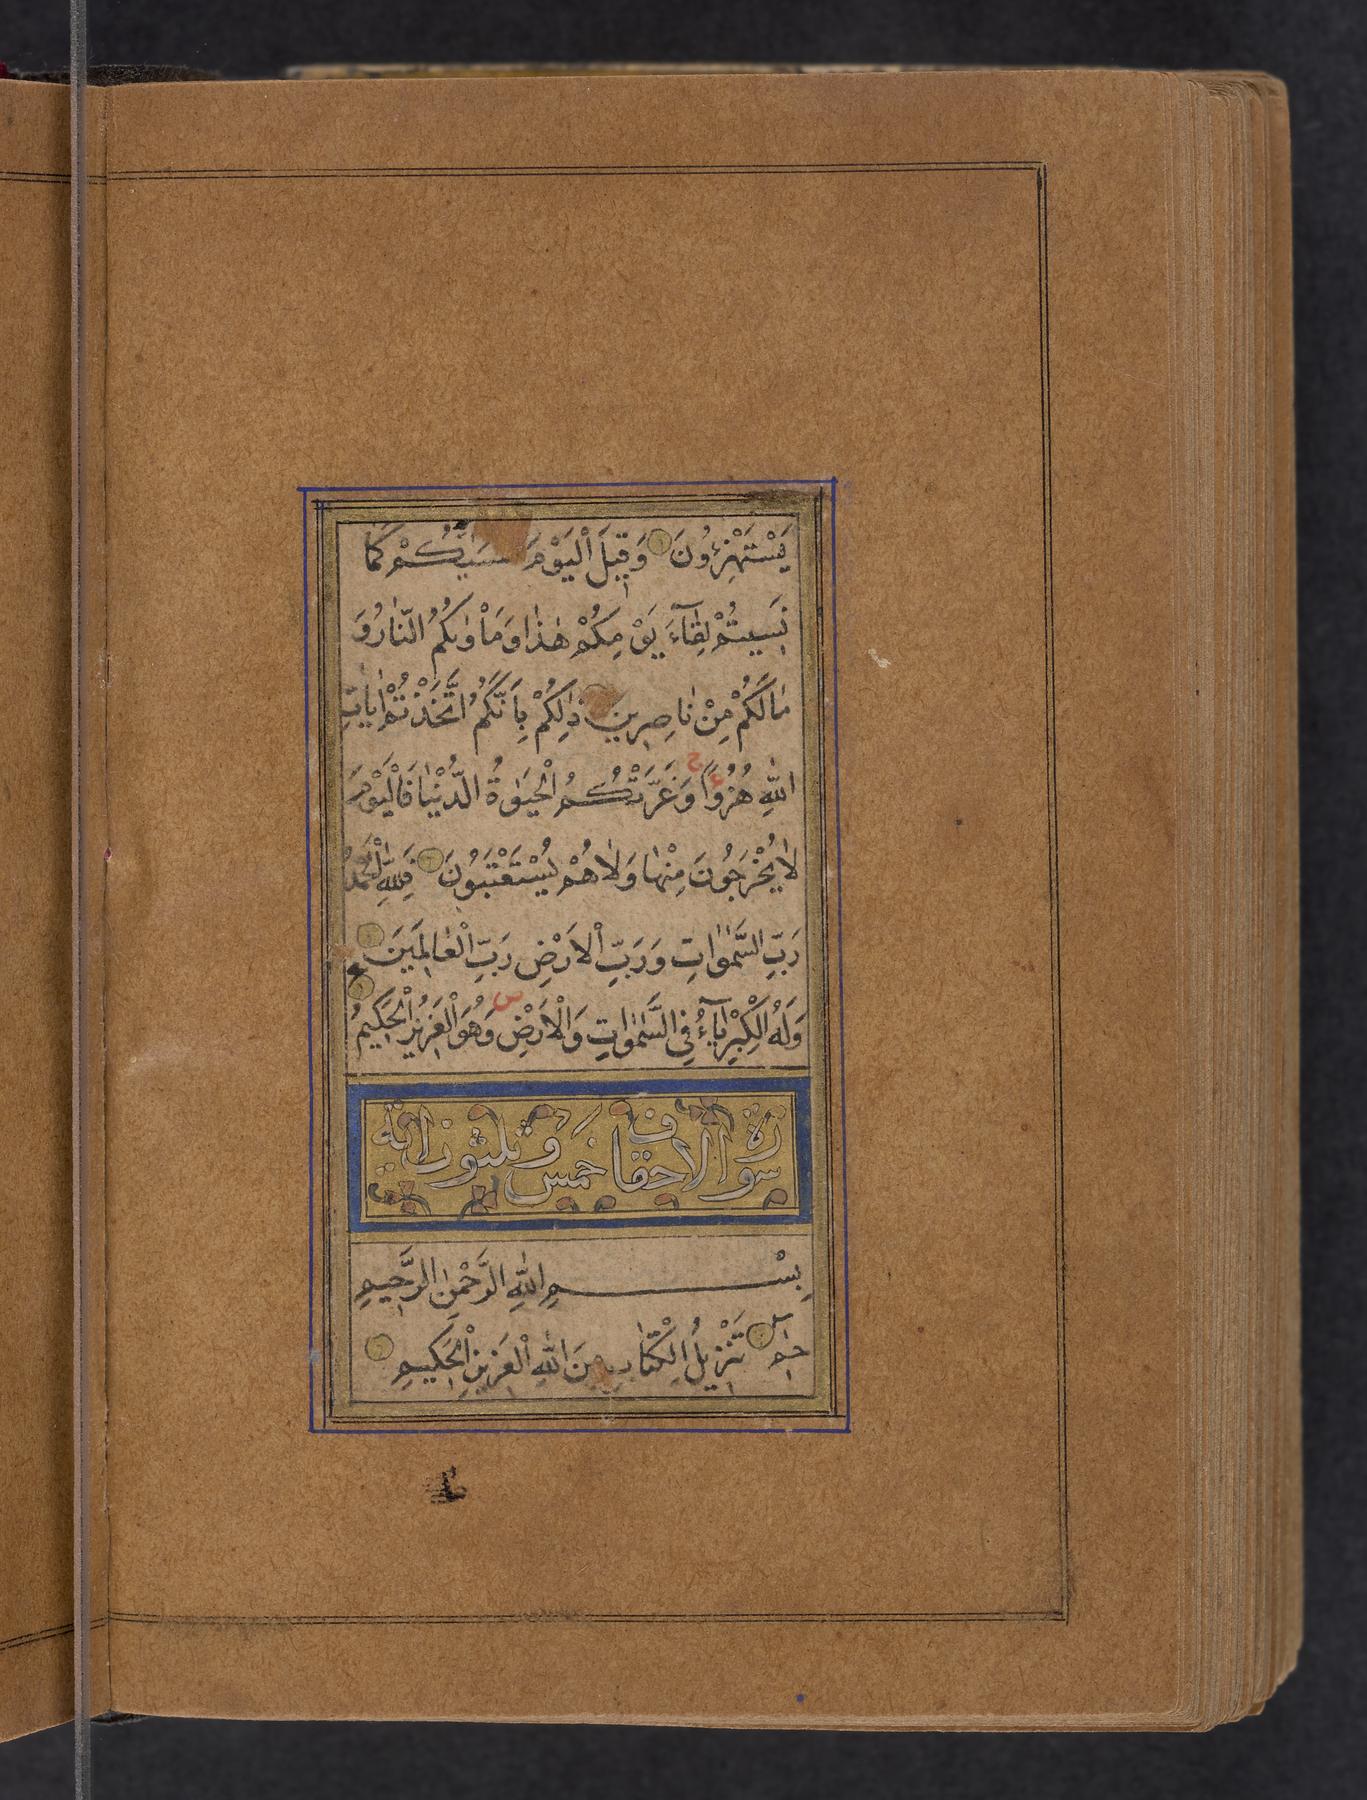 يَسْتَهْزِءُونَ وَقِيلَ الْيَوْمَ كَمَا
نَسِيتُمْ لِقَآءَ يَوْمِكُمْ هٰذَا وَمَأْوٰىكُمُ النَّارُ وَ
مَالَكُمْ مِنْ نَاصِرِينَ ذٰلِكُمْ بِاَنَّكُمُ اتَّخَذْتُمْ اٰيَاتِ
اللّٰهِ هُزُوًا وَغَرَّتْكُمُ الْحَيٰوةُ الدُّنْيَا فَالْيَوْمَ
لَا يُخْرَجُونَ مِنْهَا وَلَاهُمْ يُسْتَعْتَبُونَ فَلِلّٰهِ الْحَمْدُ
رَبِّ السَّمٰوَاتِ وَرَبِّ الْاَرْضِ رَبِّ الْعَالَمِينَ
وَلَهُ الْكِبْرِيَآءُ فِي السَّمٰوَاتِ وَالْاَرْضِ وَهُوَ الْعَزِيزُ الْحَكِيمُ
سورة الاحقاف خمس و ثلثون اية
بِسْمِ اللّٰهِ الرَّحْمٰنِ الرَّحِيمِ
حٰمٓ تَنْزِيلُ الْكِتَابِ مِنَ اللّٰهِ الْعَزِيزِ الْحَكِيمِ